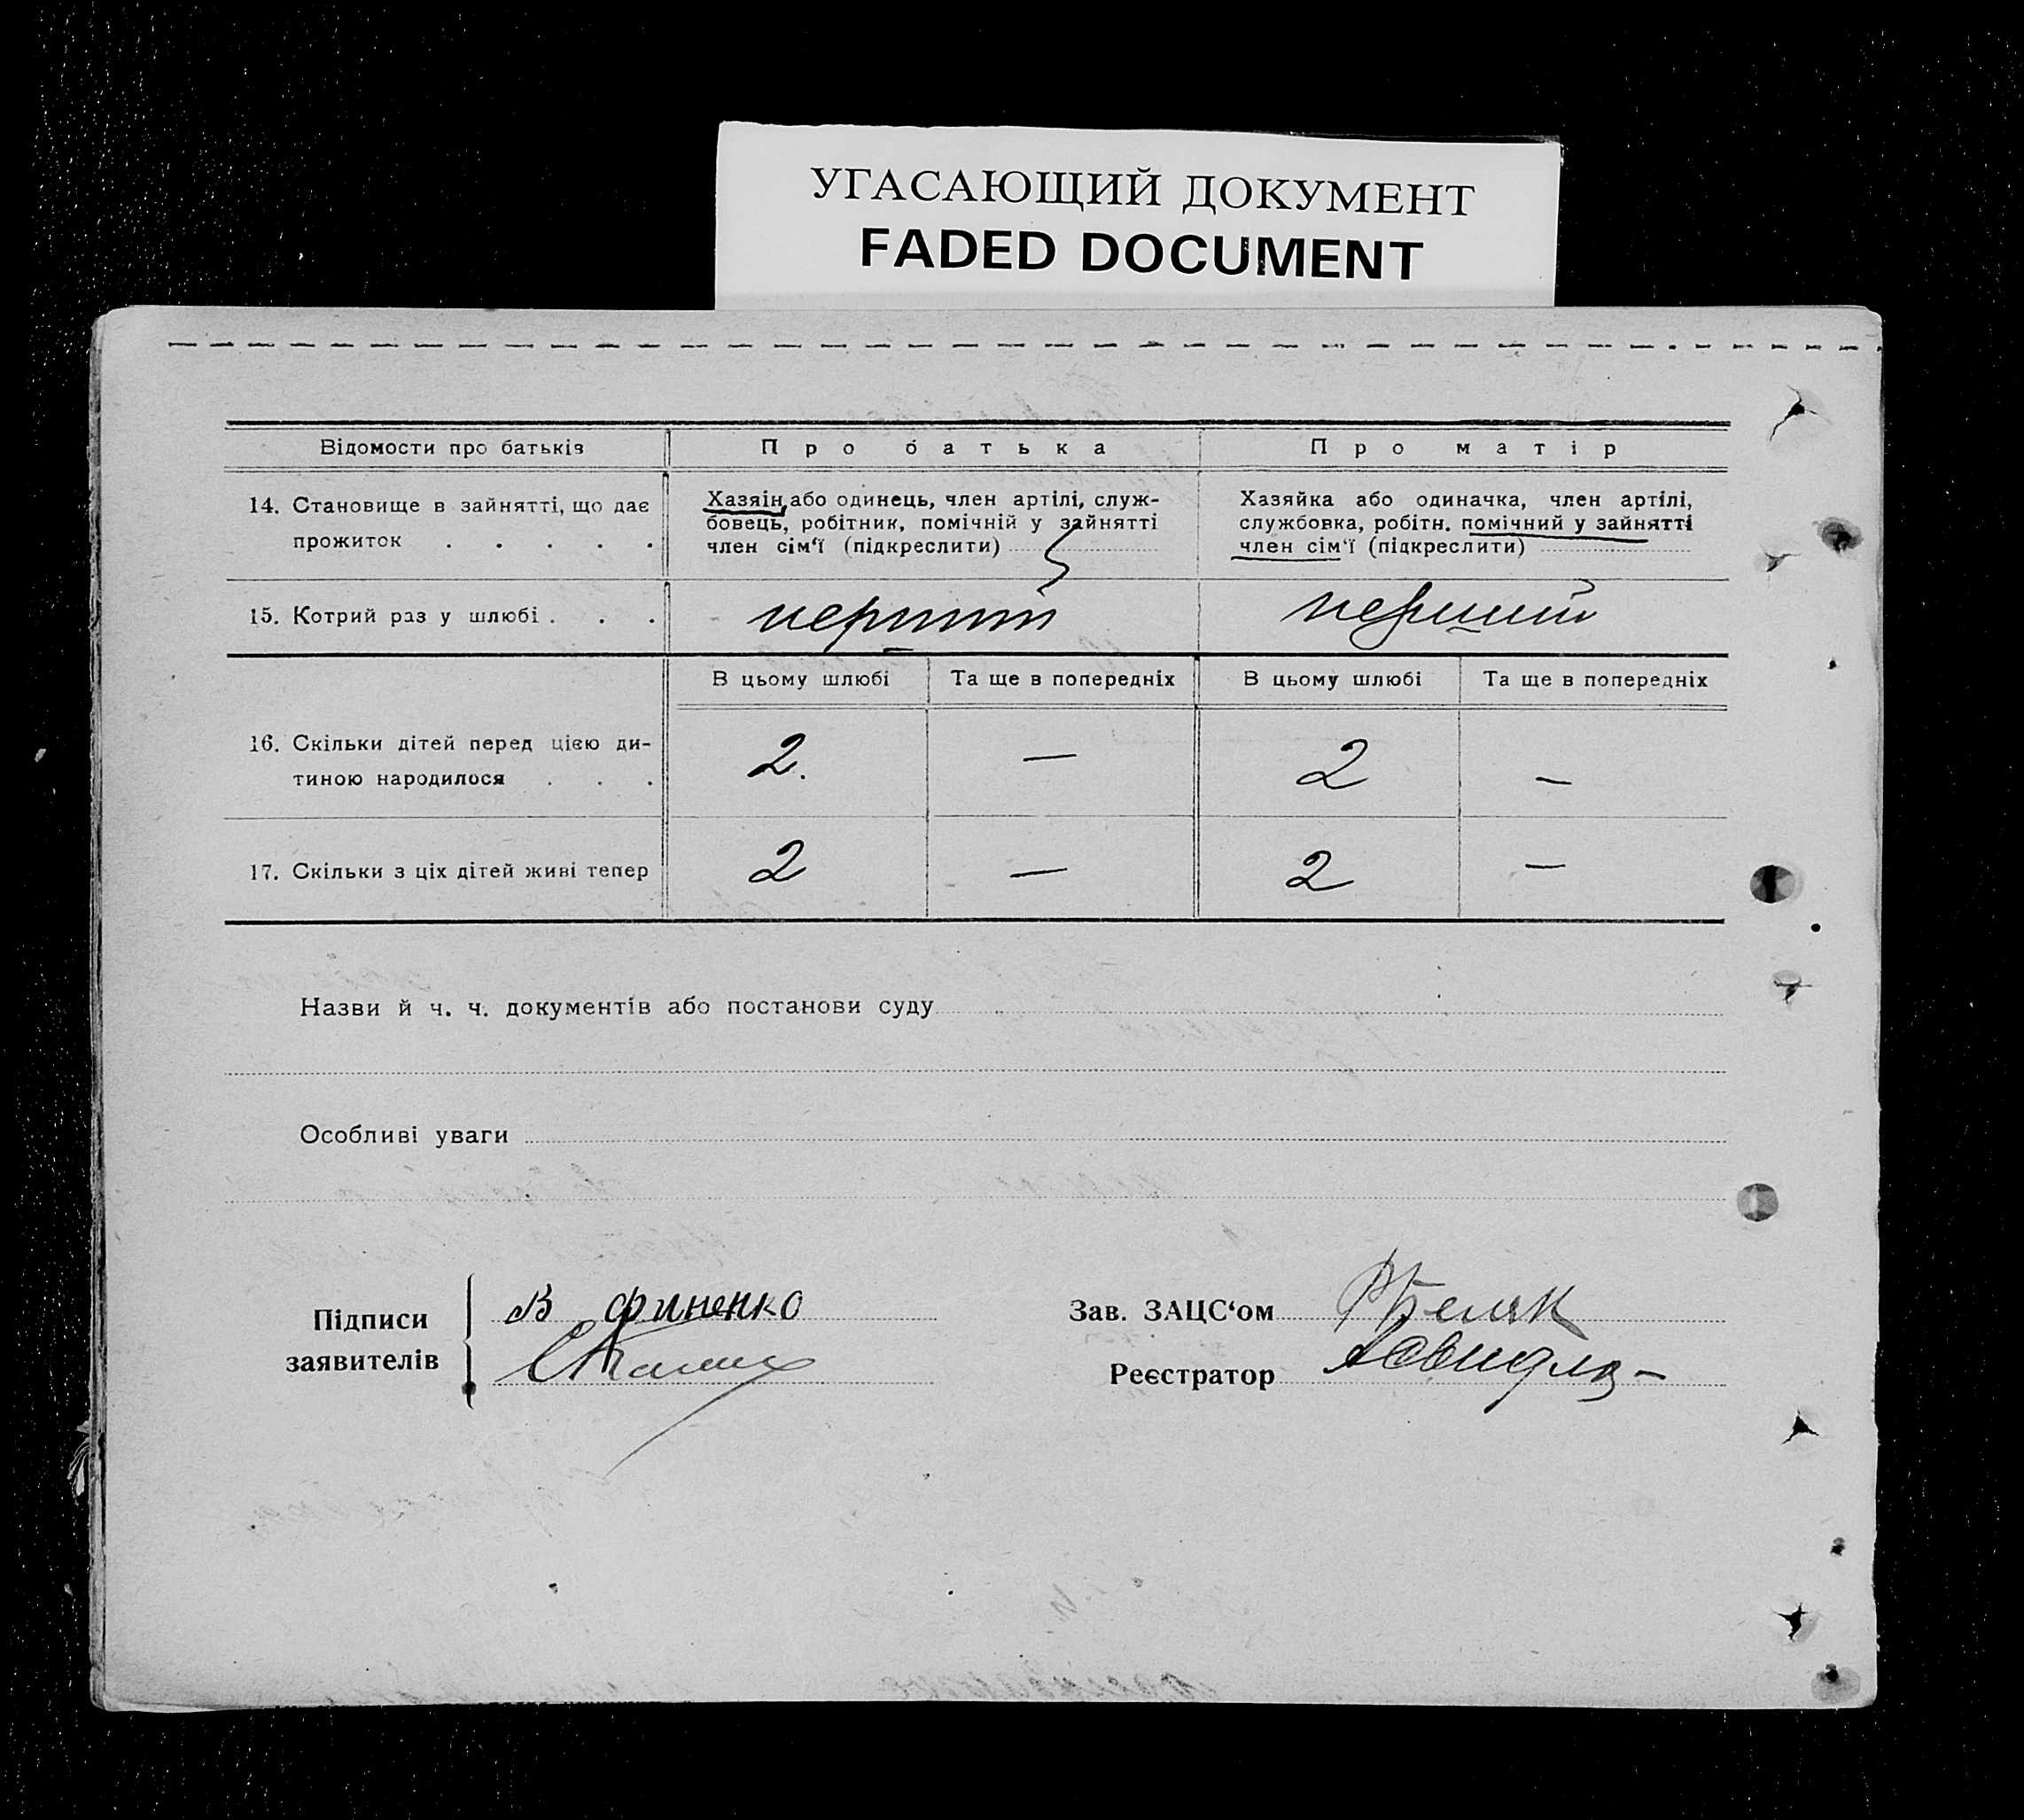 УГАСАЮЩИЙ ДОКУМЕНТ
FADED DOCUMENT
Відомости про батьків
Про батька
Про матір
14. Становище в зайнятті, що дає
прожиток . . . . .
Хазяїн або одинець, член артілі, служ-
бовець, робітник, помічній у зайнятті
член сім‘ї (підкреслити)
Хазяйка або одиначка, член артілі,
службовка, робітн. помічний у зайнятті
член сім‘ї (підкреслити)
15. Котрий раз у шлюбі . . .
перший
перший
В цьому шлюбі
Та ще в попередніх
В цьому шлюбі
Та ще в попередніх
16. Скільки дітей перед цією ди-
тиною народилося . . .
2. — 2 —
17. Скільки з ціх дітей живі тепер
2 — 2 —
Назви й ч. ч. документів або постанови суду
Особливі уваги
Підписи
заявителів
В Финенко
Зав. ЗАЦС‘ом
Реєстратор